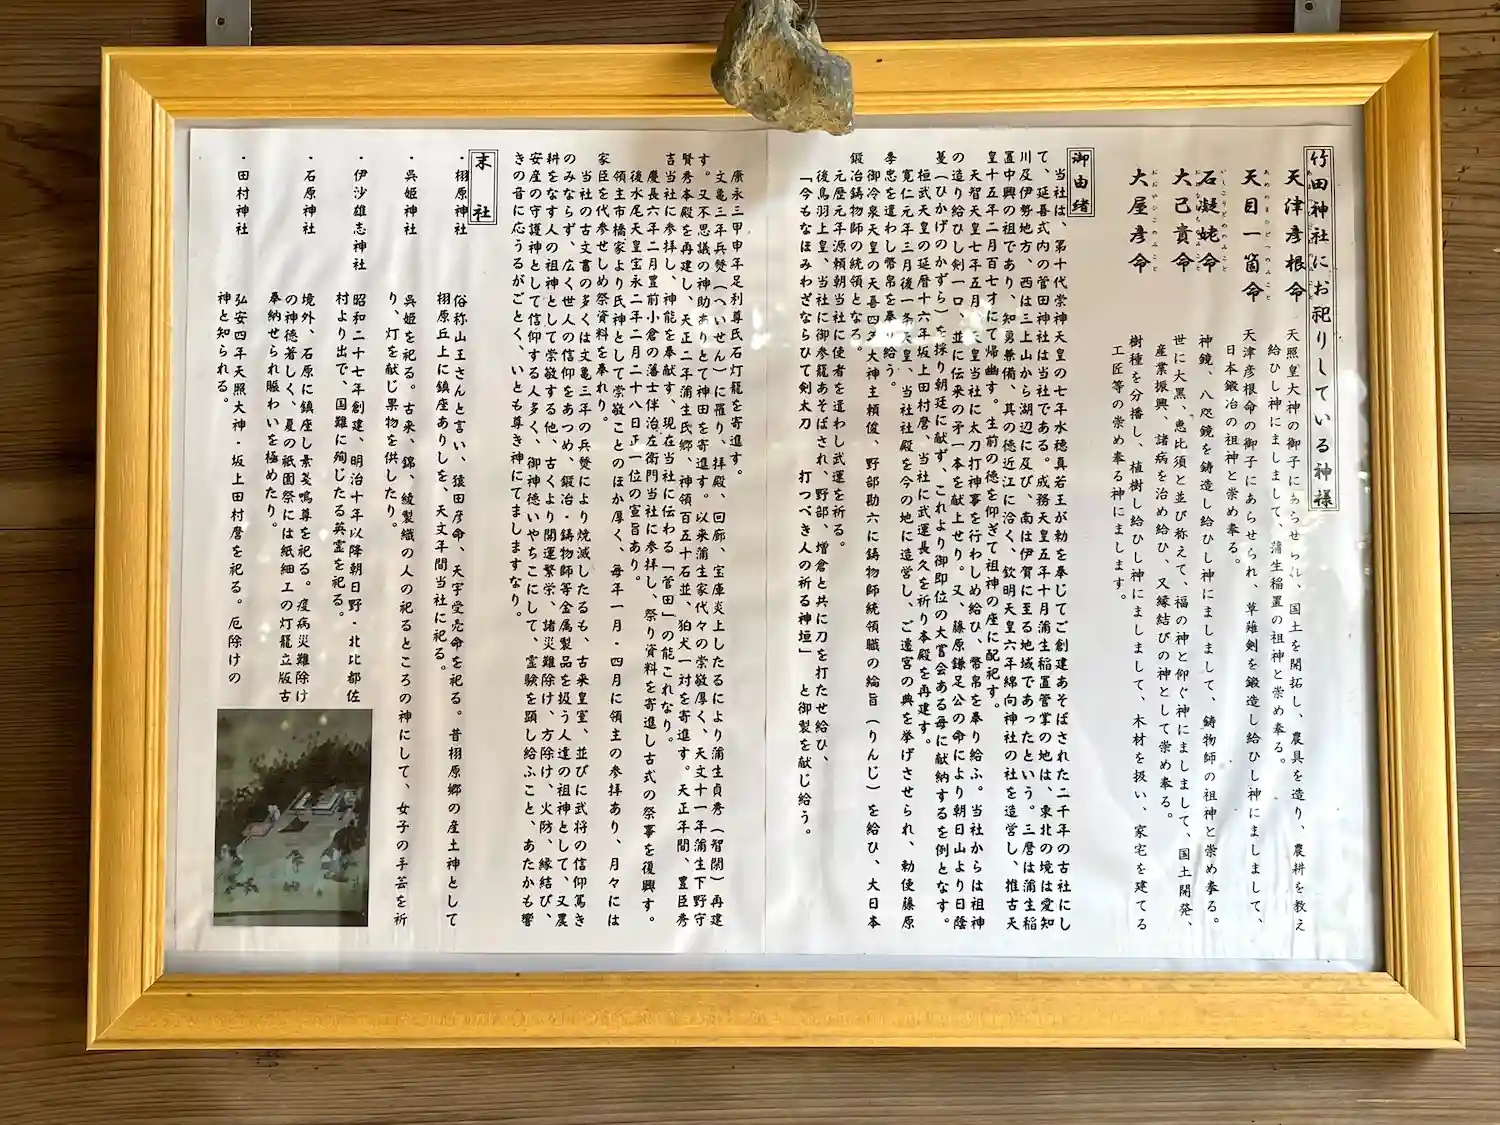 竹田神社にお祀りしている神様
天津彦根命
天照皇大神の御子にあらせられ、国土を開拓し、農具を造り、農耕を教え
給ひし神にましまして、蒲生稲置の祖神と崇め奉る。
あめのまひとつのみこと
天目一箇命
天津彦根命の御子にあらせられ、草薙剣を鍛造し給ひし神にましまして、
日本鍛冶の祖神と崇め奉る。
いしこりどめのみこと
石凝姥命
神鏡、八咫鏡を鋳造し給ひし神にましまして、鋳物師の祖神と崇め奉る。
大己貴命
世に大黒、恵比須と並び称えて、福の神と仰ぐ神にましまして、国土開発、
産業振興、諸病を治め給ひ、又縁結びの神として崇め奉る。
おおやひこのみこと
大屋彦命
樹種を分播し、植樹し給ひし神にましまして、木材を扱い、家宅を建てる
工匠等の崇め奉る神にまします。
御由緒
当社は、第十代崇神天皇の七年水穂真若王が勅を奉じてご創建あそばされた二千年の古社にし
て、延喜式内の菅田神社は当社である。成務天皇五年十月蒲生稲置管掌の地は、東北の境は愛知
川及伊勢地方、西は三上山から湖辺に及び、南は伊賀に至る地域であったという。三麿は蒲生稲
置中興の祖であり、知勇兼備、其の徳近江に洽く、欽明天皇六年綿向神社の社を造営し、推古天
皇十五年二月百七才にて帰幽す。生前の徳を仰ぎて祖神の座に配祀す。
天智天皇七年五月、天皇当社に太刀打神事を行わしめ給ひ、幣帛を奉り給ふ。当社からは祖神
の造り給ひし剣一口、並に伝来の矛一本を献上せり。又、藤原鎌足公の命により朝日山より日蔭
蔓（ひかげのかずら）を採り朝廷に献ず、これより御即位の大嘗会ある毎に献納するを例となす。
桓武天皇の延暦十六年坂上田村麿、当社に武運長久を祈り本殿を再建す。
寛仁元年三月後一条天皇、当社社殿を今の地に造営し、ご遷宮の典を挙げさせられ、勅使藤原
季忠を遣わし幣帛を奉り給う。
御冷泉天皇の天喜四年大神主頼俊、野部勘六に鋳物師統領職の綸旨（りんじ）を給ひ、大日本
鍛冶鋳物師の統領となる。
元歴元年源頼朝当社に使者を遣わし武運を祈る。
後鳥羽上皇、当社に御参籠あそばされ、野部、増倉と共に刀を打たせ給ひ、
「今もなほみわざならひて剣太刀　打つべき人の祈る神垣」　と御製を献じ給う。
康永三甲申年足利尊氏石灯籠を寄進す。
文亀三年兵燹（へいせん）に罹り、拝殿、回廊、宝庫炎上したるにより蒲生貞秀（智閑）再建
す。又不思議の神助ありとて神田を寄進す。以来蒲生家代々の崇敬厚く、天文十一年蒲生下野守
賢秀本殿を再建し、天正二年蒲生氏郷、神領百五十石並、狛犬一対を寄進す。天正年間、豊臣秀
吉当社に参拝し、神能を奉献す。現在当社に伝わる「菅田」の能これなり。
慶長六年二月豊前小倉の藩士伴治左衛門当社に参拝し、祭り資料を寄進し古式の祭事を復興す。
後水尾天皇宝永二年二月二十八日正一位の宣旨あり。
領主市橋家より氏神として崇敬ことのほか厚く、毎年一月・四月に領主の参拝あり、月々には
家臣を代参せしめ祭資料を奉れり。
当社の古文書の多くは文亀三年の兵燹により焼滅したるも、古来皇室、並びに武将の信仰篤き
のみならず、広く世人の信仰をあつめ、鍛冶・鋳物師等金属製品を扱う人達の祖神として、又農
耕をなす人の祖神として崇敬する他、古くより開運繁栄、諸災難除け、方除け、火防、縁結び、
安産の守護神として信仰する人多く、御神徳いやちこにして、霊験を顕し給ふこと、あたかも響
きの音に応うるがごとく、いとも尊き神にてましますなり。
末社
・栩原神社
俗称山王さんと言い、猿田彦命、天宇受売命を祀る。昔栩原郷の産土神として
栩原丘上に鎮座ありしを、天文年間当社に祀る。
・呉姫神社
呉姫を祀る。古来、錦、綾製織の人の祀るところの神にして、女子の手芸を祈
り、灯を献じ果物を供したり。
・伊沙雄志神社
昭和二十七年創建、明治十年以降朝日野・北比都佐
村より出で、国難に殉じたる英霊を祀る。
・石原神社
境外、石原に鎮座し素戔嗚尊を祀る。疫病災難除け
の神徳著しく、夏の祇園祭には紙細工の灯籠立版古
奉納せられ賑わいを極めたり。
・田村神社
弘安四年天照大神・坂上田村麿を祀る。厄除けの
神と知られる。